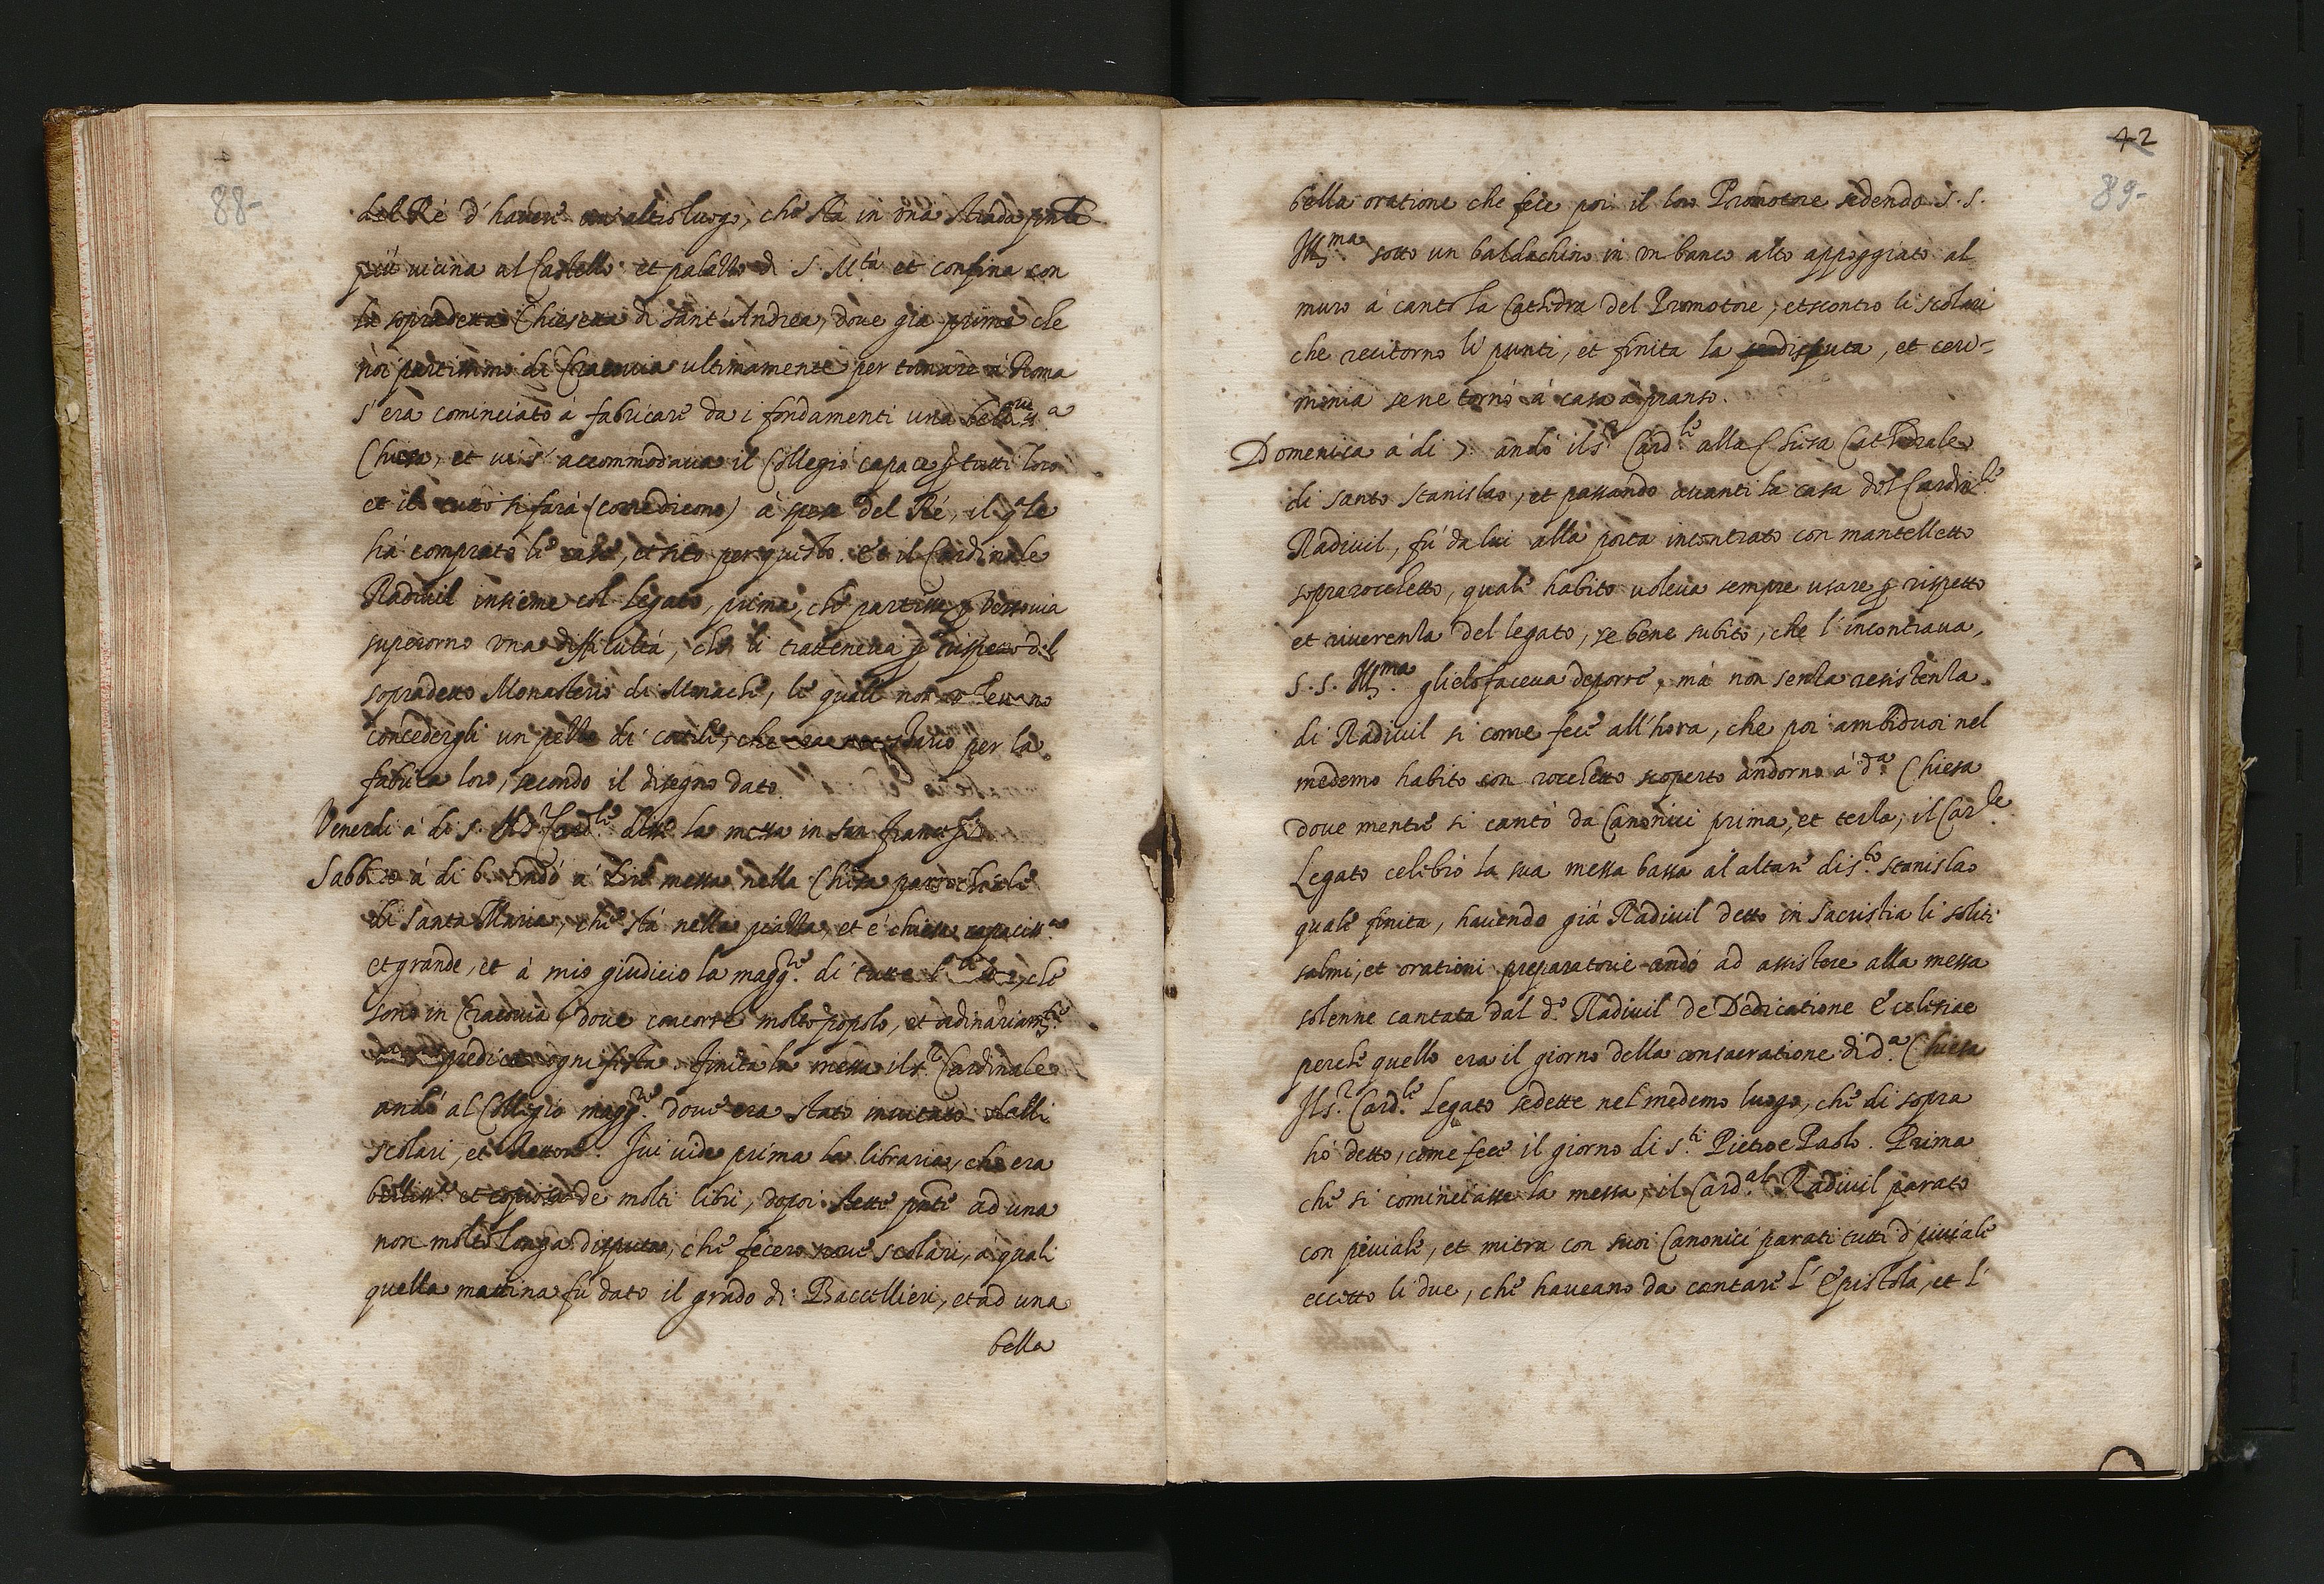 88-
del Ré d'havere un'altro luogo, che stà in una strada
più vicina al Castello et palazzo di S. M.tà et confina con
la sopradetta Chiesetta di Sant'Andrea, dove già prima che
noi partimmo di Cracovia ultimamente per tornare à Roma
s'era cominciato à fabricare da i fondamenti una bellis.ma
Chiesa, et vi s'accommodava il Collegio capace p tutti loro
et il tutto si farà (come dicono) à spese del Ré, il q.le
hà comprato le case, et sito per questo. Et il Cardinale
Radivil insieme col Legato, prima che partisse p Versovia
superorno una difficultà, che li tratteneva p rispetto del
sopradetto Monasterio di Monache, le quali non volevano
concedergli un pezzo di cortile, che era necessario per la
fabrica loro, secondo il disegno dato.
Venerdi à di 5. Il S.r Card.le disse la messa in San Francesco
Sabbato à di 6. andò à dire messa nella Chiesa parrochiale
di Santa Maria, che stà nella piazza, et è chiesa capaciss.a
et grande, et à mio giudicio la magg.re di tutte l'altre, che
sono in Cracovia, dove concorre molto popolo, et ordinariam.te
predica ogni festa. Finita la messa il S.r Cardinale
andò al Collegio magg.re dove era stato invitato dalli
scolari, et Rettore. Ivi vide prima la libraria, che era
belliss.a et copiosa de molti libri, dopoi stette pnte ad una
non molto longa disputa, che fecero nove scolari, à quali
quella mattina fù dato il grado di Baccellieri, et ad una
bella
42
89-
bella oratione che fece poi il loro Promotore sedendo S. S.
Ill.ma sotto un baldachino in un banco alto appoggiato al
muro à canto la Cathedra del Promotore, et scontro li scolari
che recitorno li punti, et finita la disputa, et ceri-
monia se ne tornò à casa à pranso.
Domenica à di 7. andò il S.r Card.le alla Chiesa Cathedrale
di santo Stanislao, et passando avanti la casa del Cardin.le
Radivil, fù da lui alla porta incontrato con mantelletto
sopra rocchetto, quale habito voleva sempre usare p rispetto
et riverenza del legato, se bene subito, che l'incontrava,
S. S. Ill.ma glielo faceva deporre, mà non senza resistenza
di Radivil si come fece all'hora, che poi ambiduoi nel
medemo habito con rocchetto scoperto andorno à d.a Chiesa
dove mentre si cantò da Canonici prima, et terza, il Car.le
Legato celebrò la sua messa bassa al'altare di S.to Stanislao
quale finita, havendo già Radivil detto in Sacristia li soliti
salmi, et orationi preparatorie andò ad assistere alla messa
solenne cantata dal d.o Radivil de Dedicatione Ecclesiae
perche quello era il giorno della consacratione di d.a Chiesa
Il S.r Card.le Legato sedette nel medemo luogo, che di sopra
hò detto, come fece il giorno di S.ti Pietro e Paolo. Prima
che si cominciasse la messa, il Card.al Radivil parato
con peviale, et mitra con suoi Canonici parati tutti d piviale
eccetto li due, che haveano da cantare l'Epistola, et l'